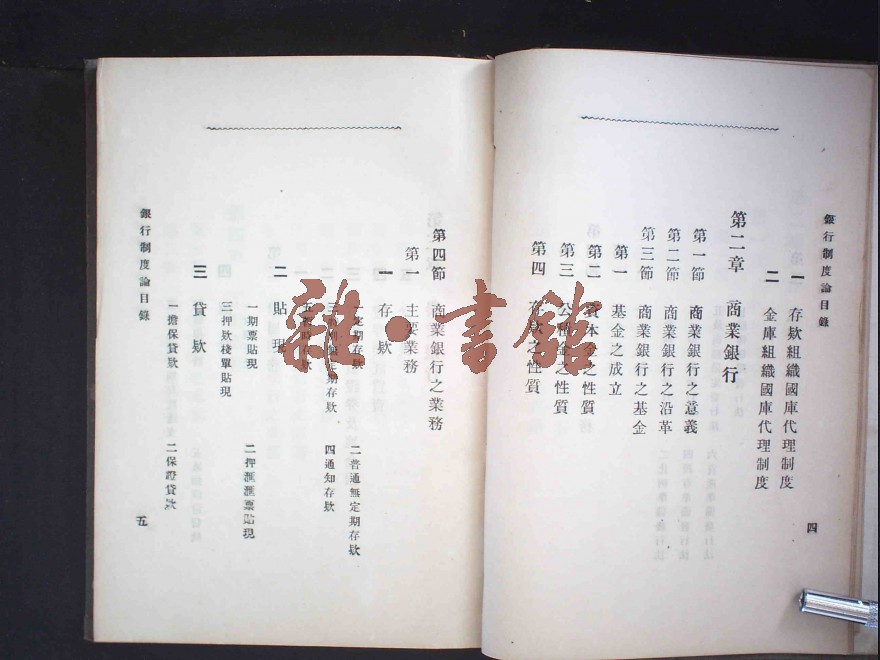 銀行制度論目錄
一 存欵組織國庫代理制度
二 金庫組織國庫代理制度
第二章 商業銀行
第一節 商業銀行之意義
第二節 商業銀行之沿革
第三節 商業銀行之基金
第一 基金之成立
第二 資本金之性質
第三 公積金之性質
第四 存欵之性質
四
第四節 商業銀行之業務
第一 主要業務
一 存欵
一定期存欵 二普通無定期存欵
期存欵 四通知存欵
存欵
二 貼現
一期票貼現 二押滙滙票貼現
三押欵棧單貼現
三 貸欵
一擔保貸欵 二保證貸欵
銀行制度論目錄
五
雜·書館